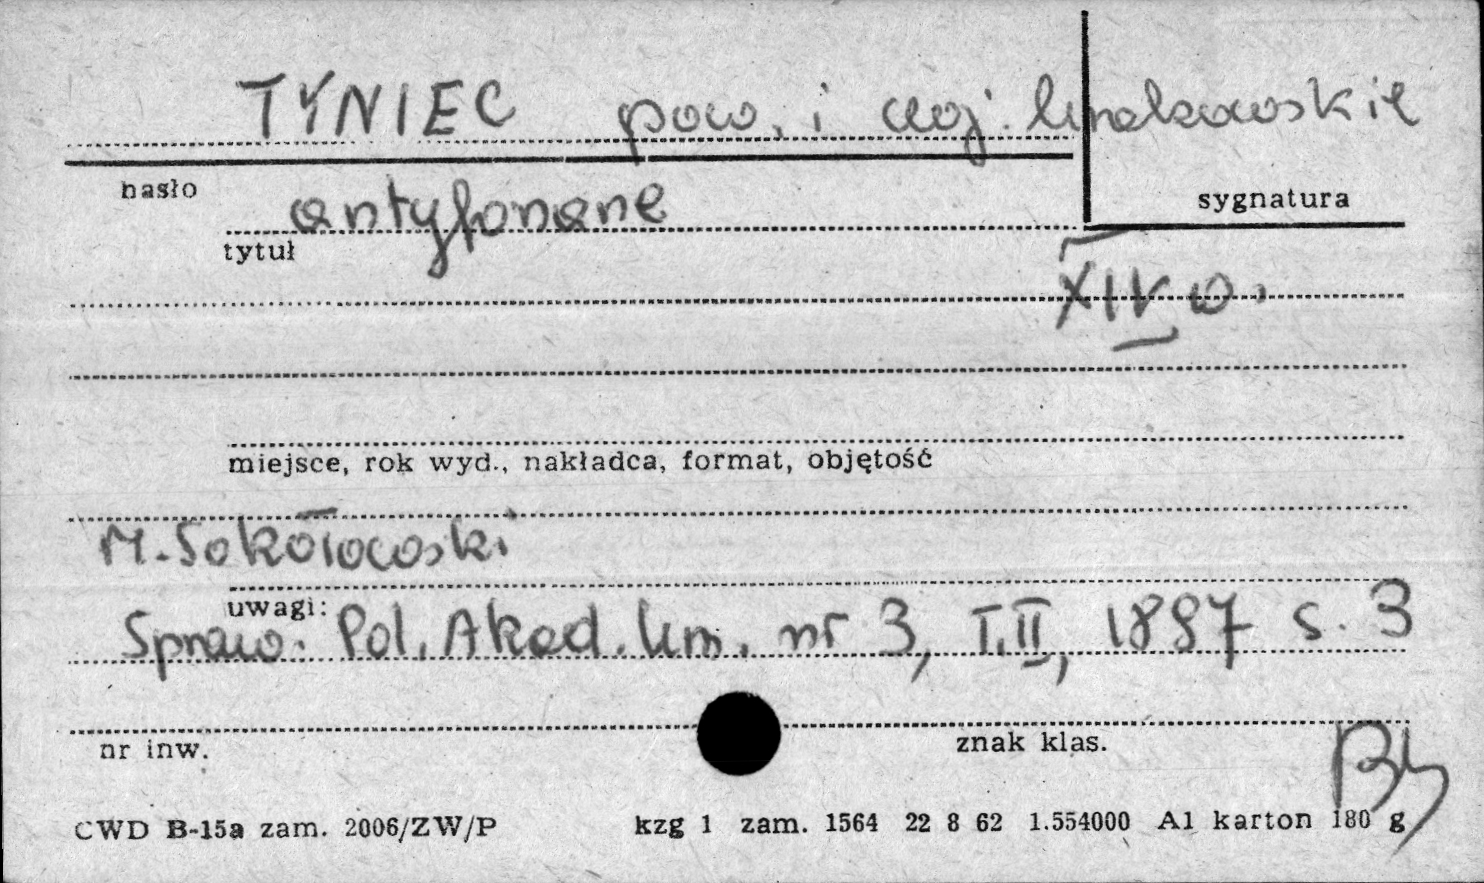 TYNIEC pow. i woj. krakowskie
hasło
sygnatura
antyfonarze
tytuł
XIV w.
miejsce, rok wyd., nakładca, format, objętość
M. Sokołowski
uwagi:
Spraw. Pol. Akad. Um. nr 3, T. II, 1897 s. 3
nr inw.
znak klas.
CWD B-15a zam. 2006/ZW/P kzg 1 zam. 1564 22 8 62 1.554000 A1 karton 180 g